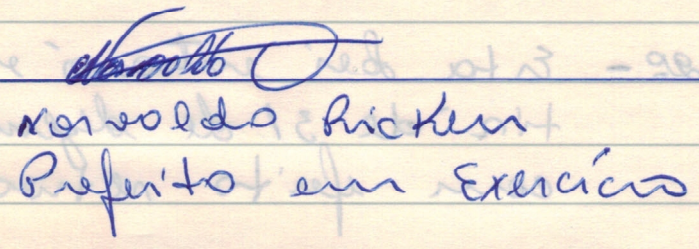 Norvaldo Ricken
Prefeito em Exercício